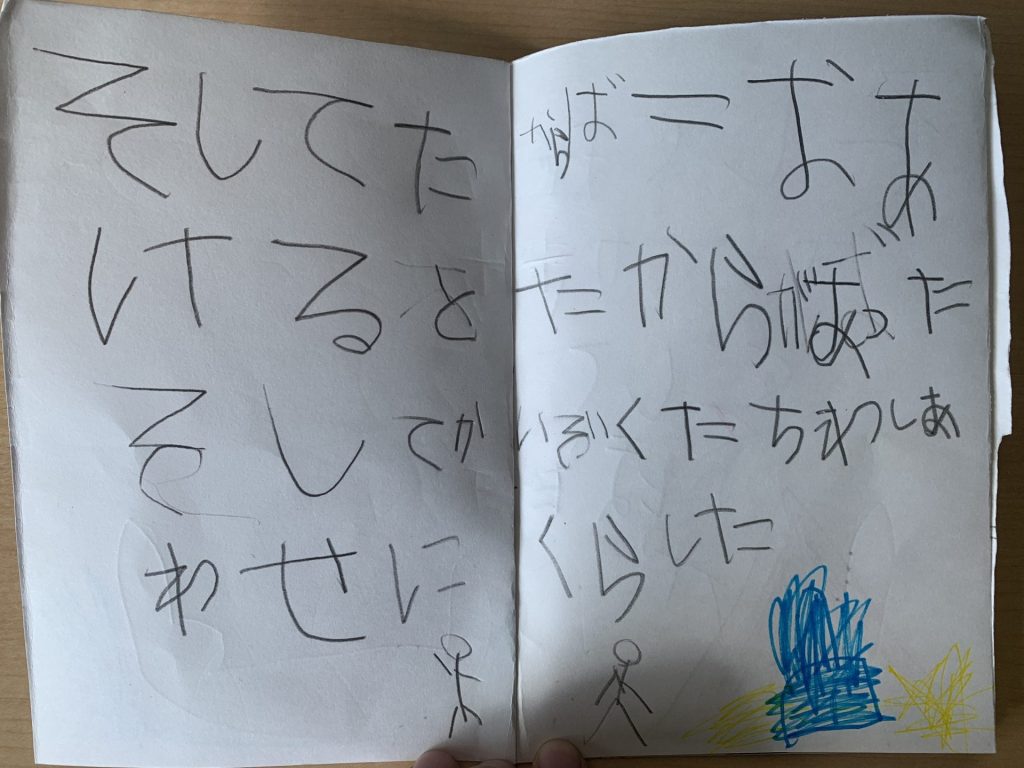 そしてたからばこおあ
けるとたからがあった
そしてかいぞくたちわしあ
わせにくらした